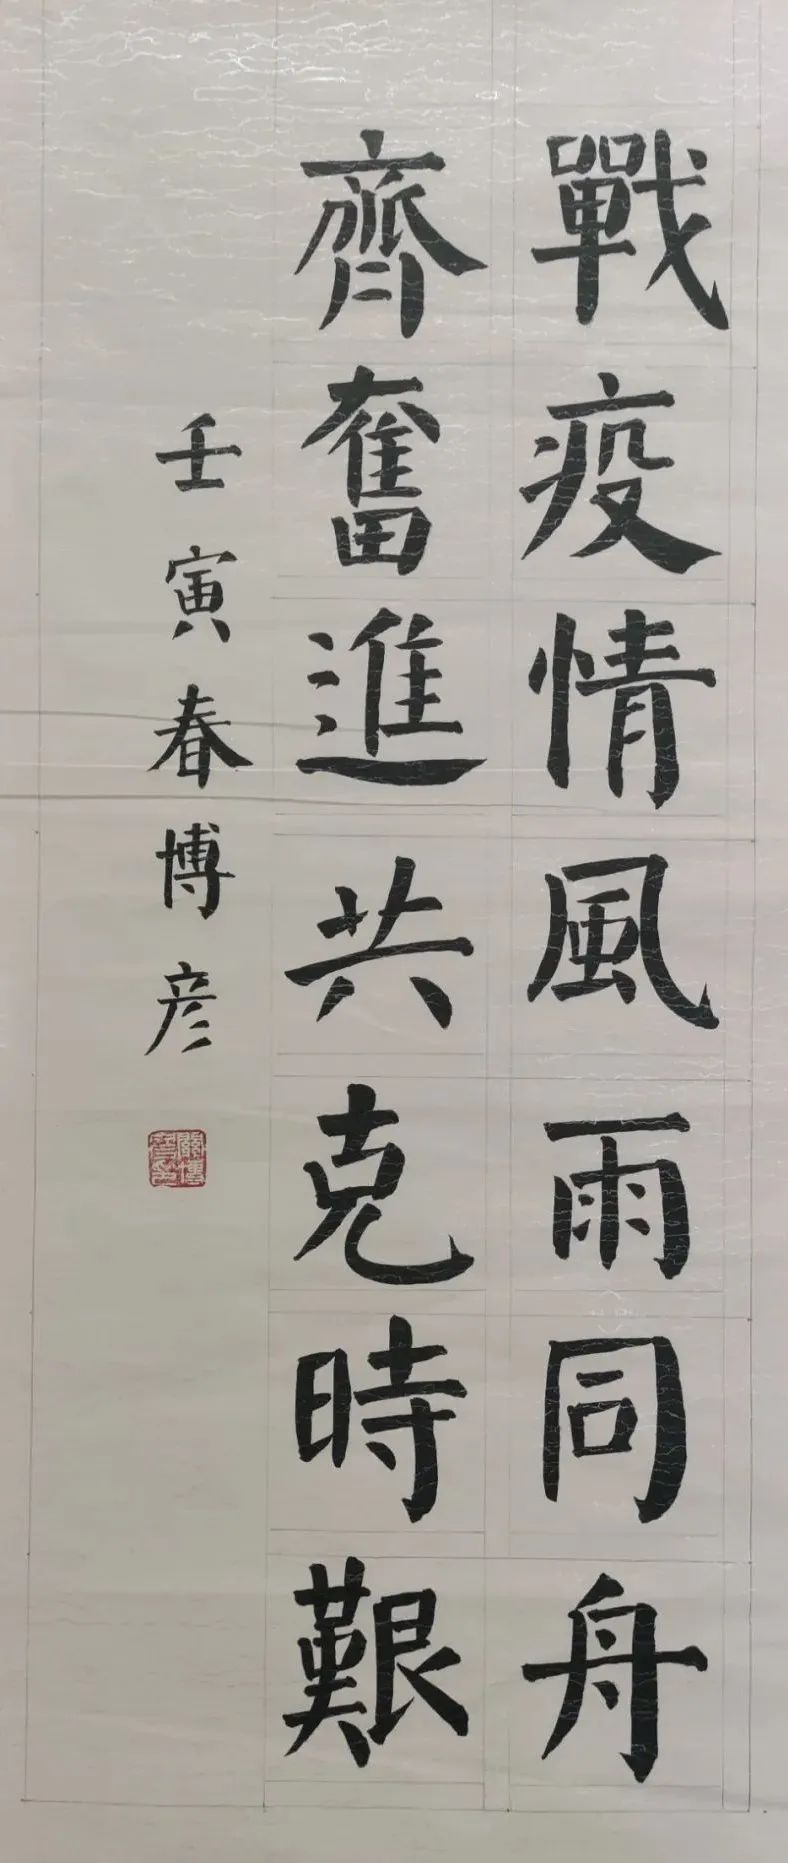 戰疫情風雨同舟
齊奮進共克時艱
壬寅春博彦